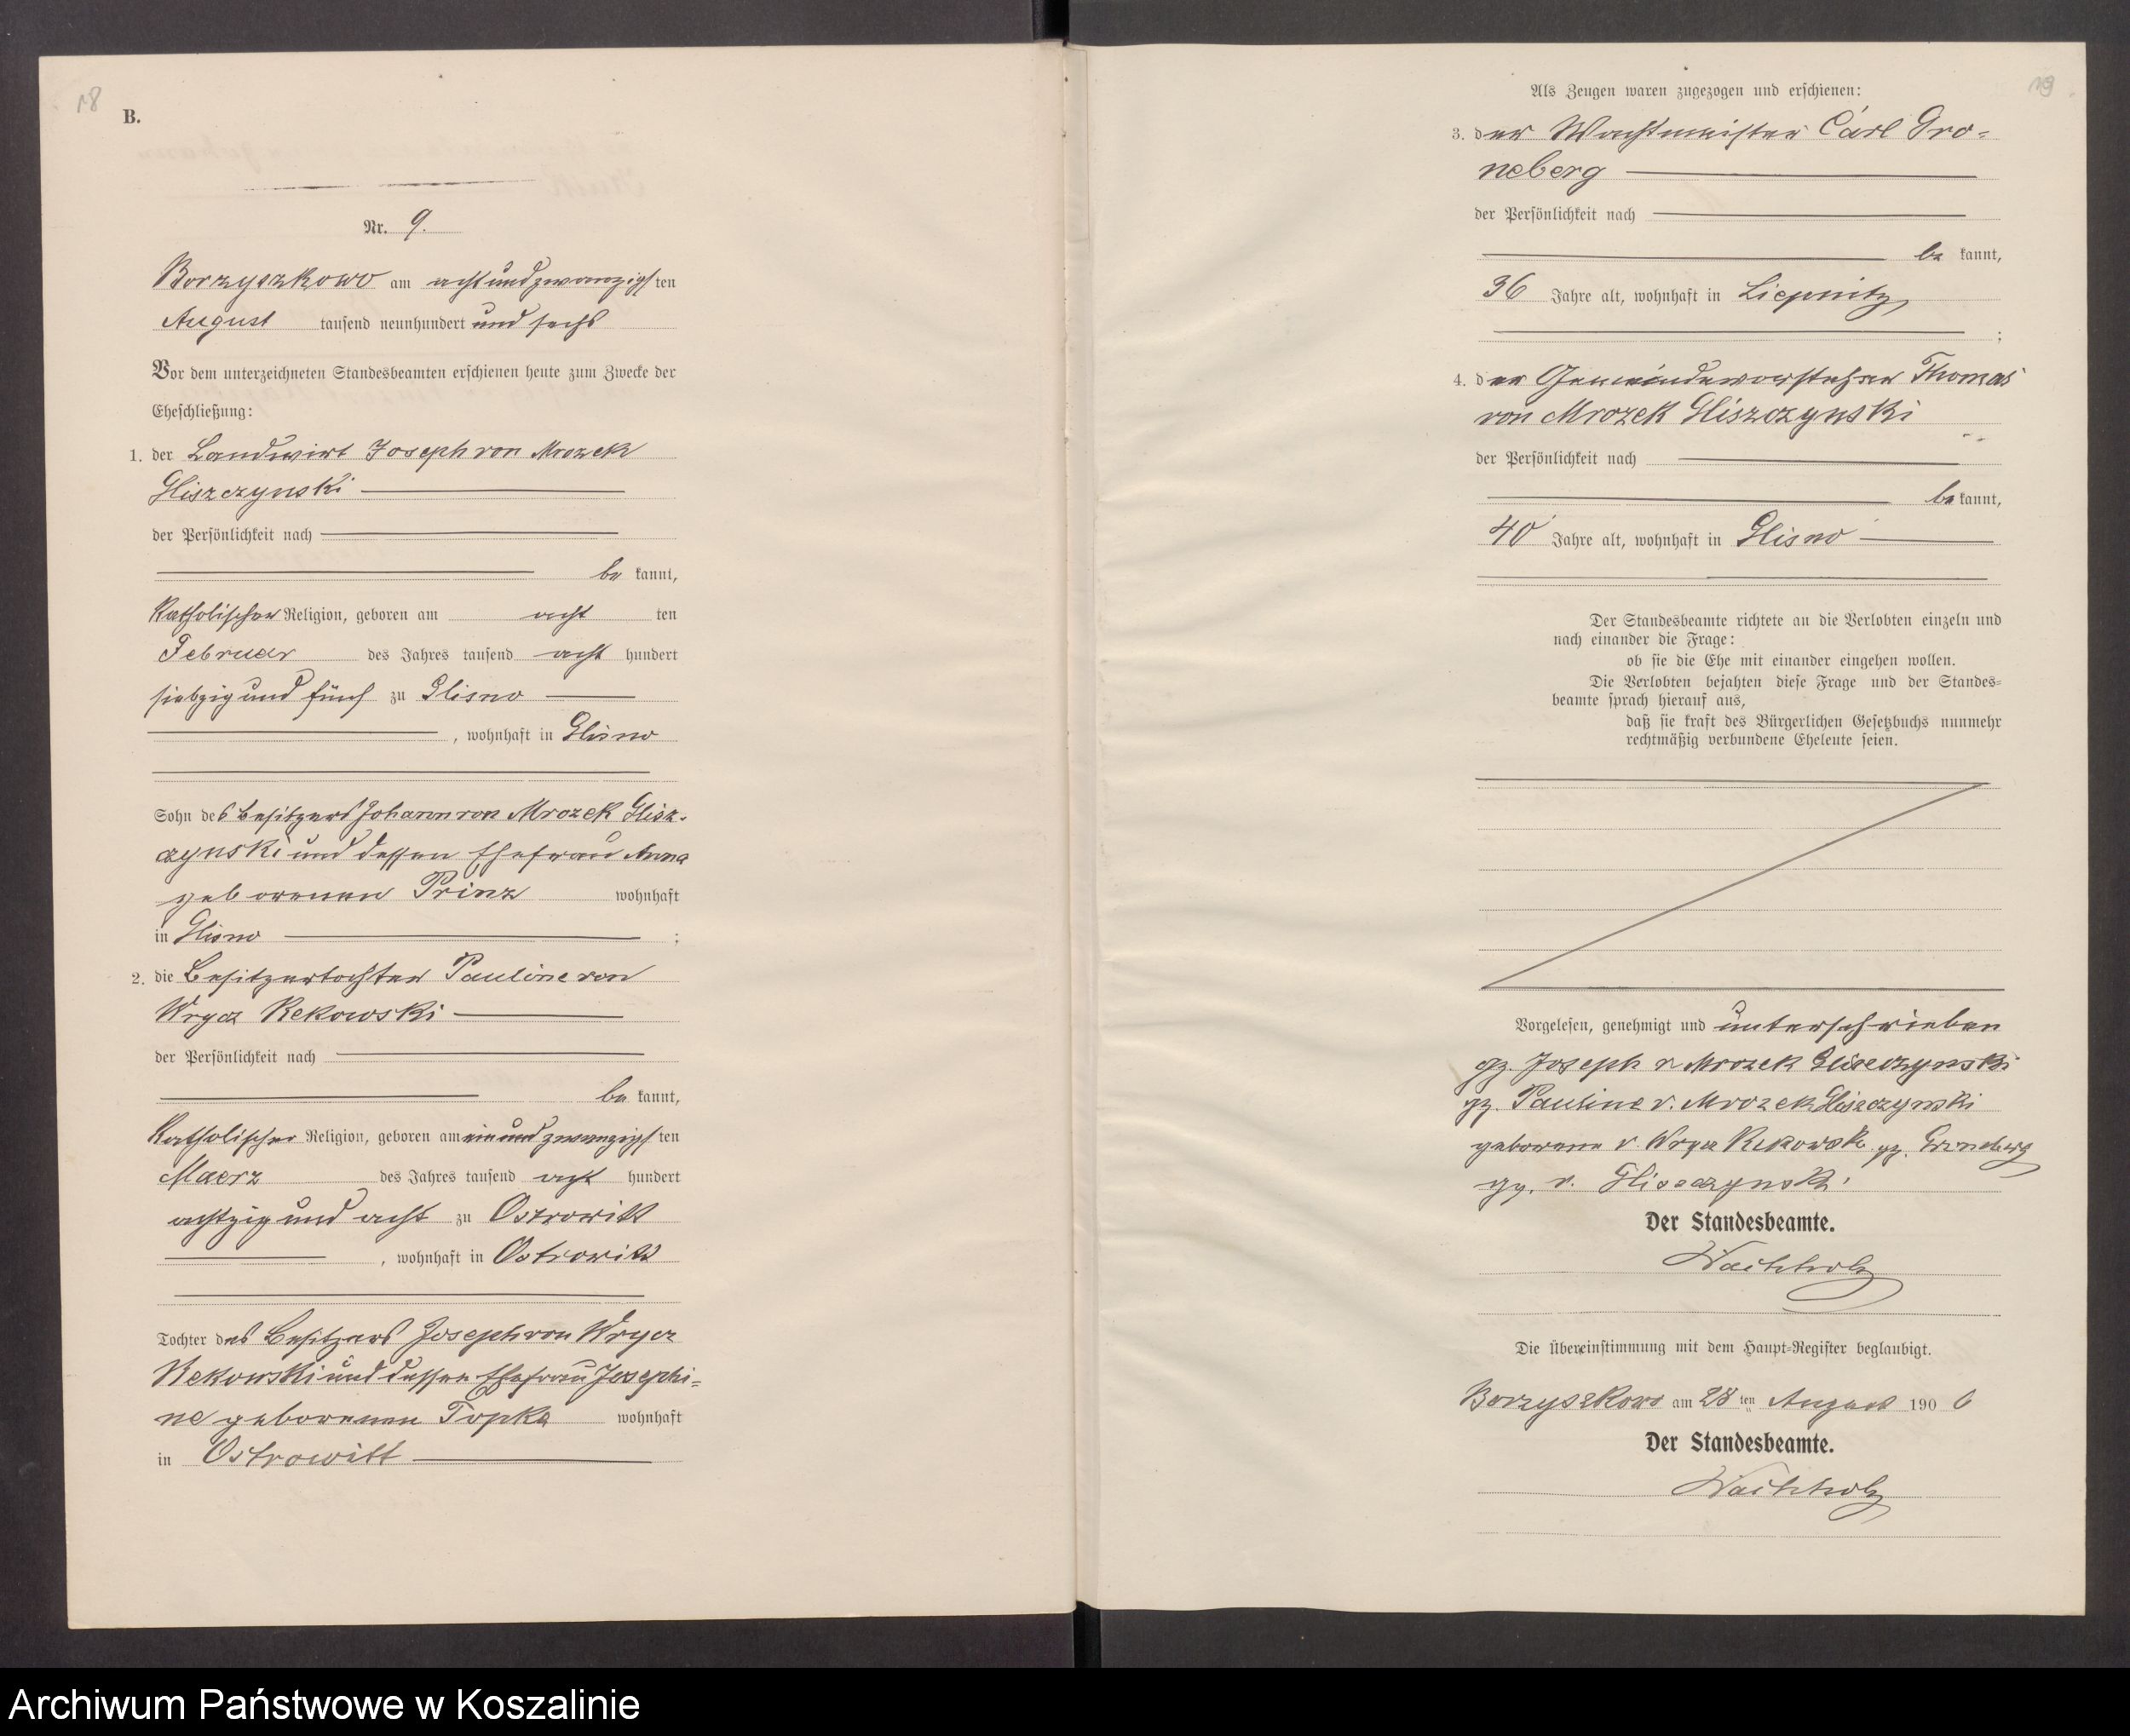 18
B.
Nr. 9.
Borzyszkowo am achtundzwanzigsten
August tausend neunhundert und sechs
Vor dem unterzeichneten Standesbeamten erschienen heute zum Zwecke der
Eheschließung:
1. der Landwirt Joseph von Mrozek
Gliszczynski
der Persönlichkeit nach
be kannt,
Katholischer Religion, geboren am acht ten
Februar des Jahres tausend acht hundert
siebzig und fünf zu Glisno
, wohnhaft in Glisno
Sohn des Besitzers Johann von Mrozek Glisz-
czynski und dessen Ehefrau Anna
geborenen Prinz wohnhaft
in Glisno ;
2. die Besitzertochter Pauline von
Wrycz Rekowski
der Persönlichkeit nach
be kannt,
Katholischer Religion, geboren am einundzwanzigsten
Maerz des Jahres tausend acht hundert
achtzig und acht zu Ostrowitt
, wohnhaft in Ostrowitt
Tochter des Besitzers Joseph von Wrycz
Rekowski und dessen Ehefrau Josephi=
ne geborenen Topka wohnhaft
in Ostrowitt
19
Als Zeugen waren zugezogen und erschienen:
3. der Wachtmeister Carl Gro=
neberg
der Persönlichkeit nach
be kannt,
36 Jahre alt, wohnhaft in Liepnitz
;
4. der Gemeindevorsteher Thomas
von Mrozek Gliszczynski
der Persönlichkeit nach
be kannt,
40 Jahre alt, wohnhaft in Glisno
Der Standesbeamte richtete an die Verlobten einzeln und
nach einander die Frage:
ob sie die Ehe mit einander eingehen wollen.
Die Verlobten bejahten diese Frage und der Standes=
beamte sprach hierauf aus,
daß sie kraft des Bürgerlichen Gesetzbuchs nunmehr
rechtmäßig verbundene Eheleute seien.
Vorgelesen, genehmigt und unterschrieben
gz. Joseph v Mrozek Gliszczynski
gz. Pauline v. Mrozek Gliszczynski
geborene v. Wrycz Rekowski gz. Groneberg
gz. v. Gliszczynski
Der Standesbeamte.
Wachholz
Die Übereinstimmung mit dem Haupt=Register beglaubigt.
Borzyszkowo am 28 ten August 190 6
Der Standesbeamte.
Wachholz
Archiwum Państwowe w Koszalinie